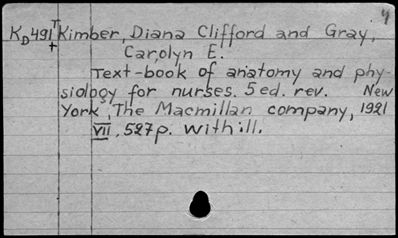 4
KD491 T Kimber, Diana Clifford and Gray,
+ Carolyn E.
Text-book of anatomy and phy-
siology for nurses. 5 ed. rev. New
York, The Macmillan company, 1921
VII, 527p. with ill.